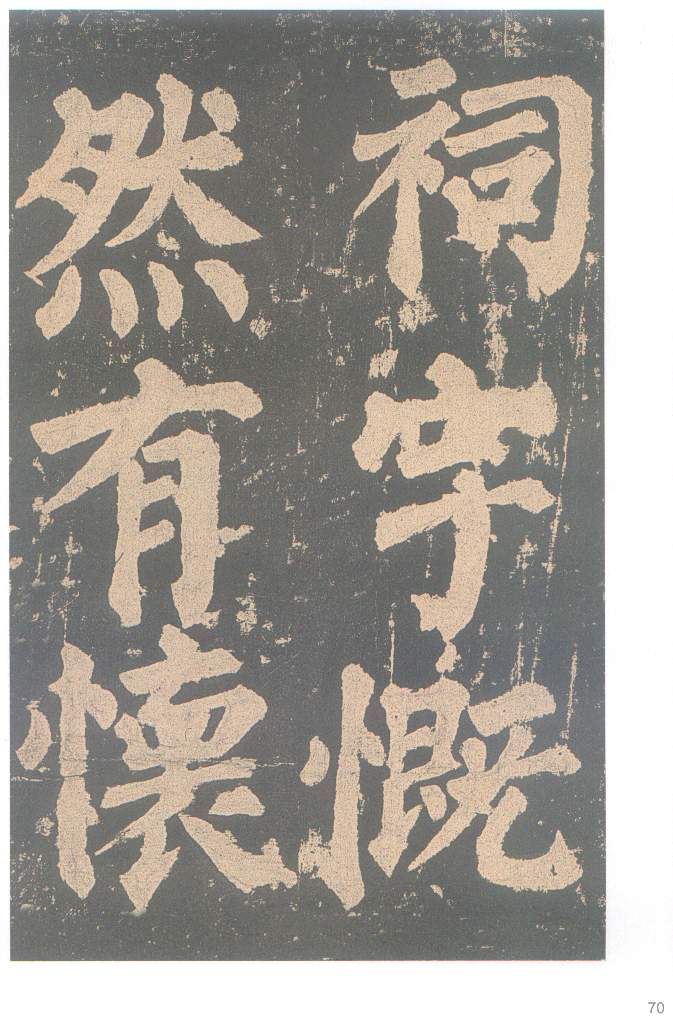 祠宇慨
然有懷
70